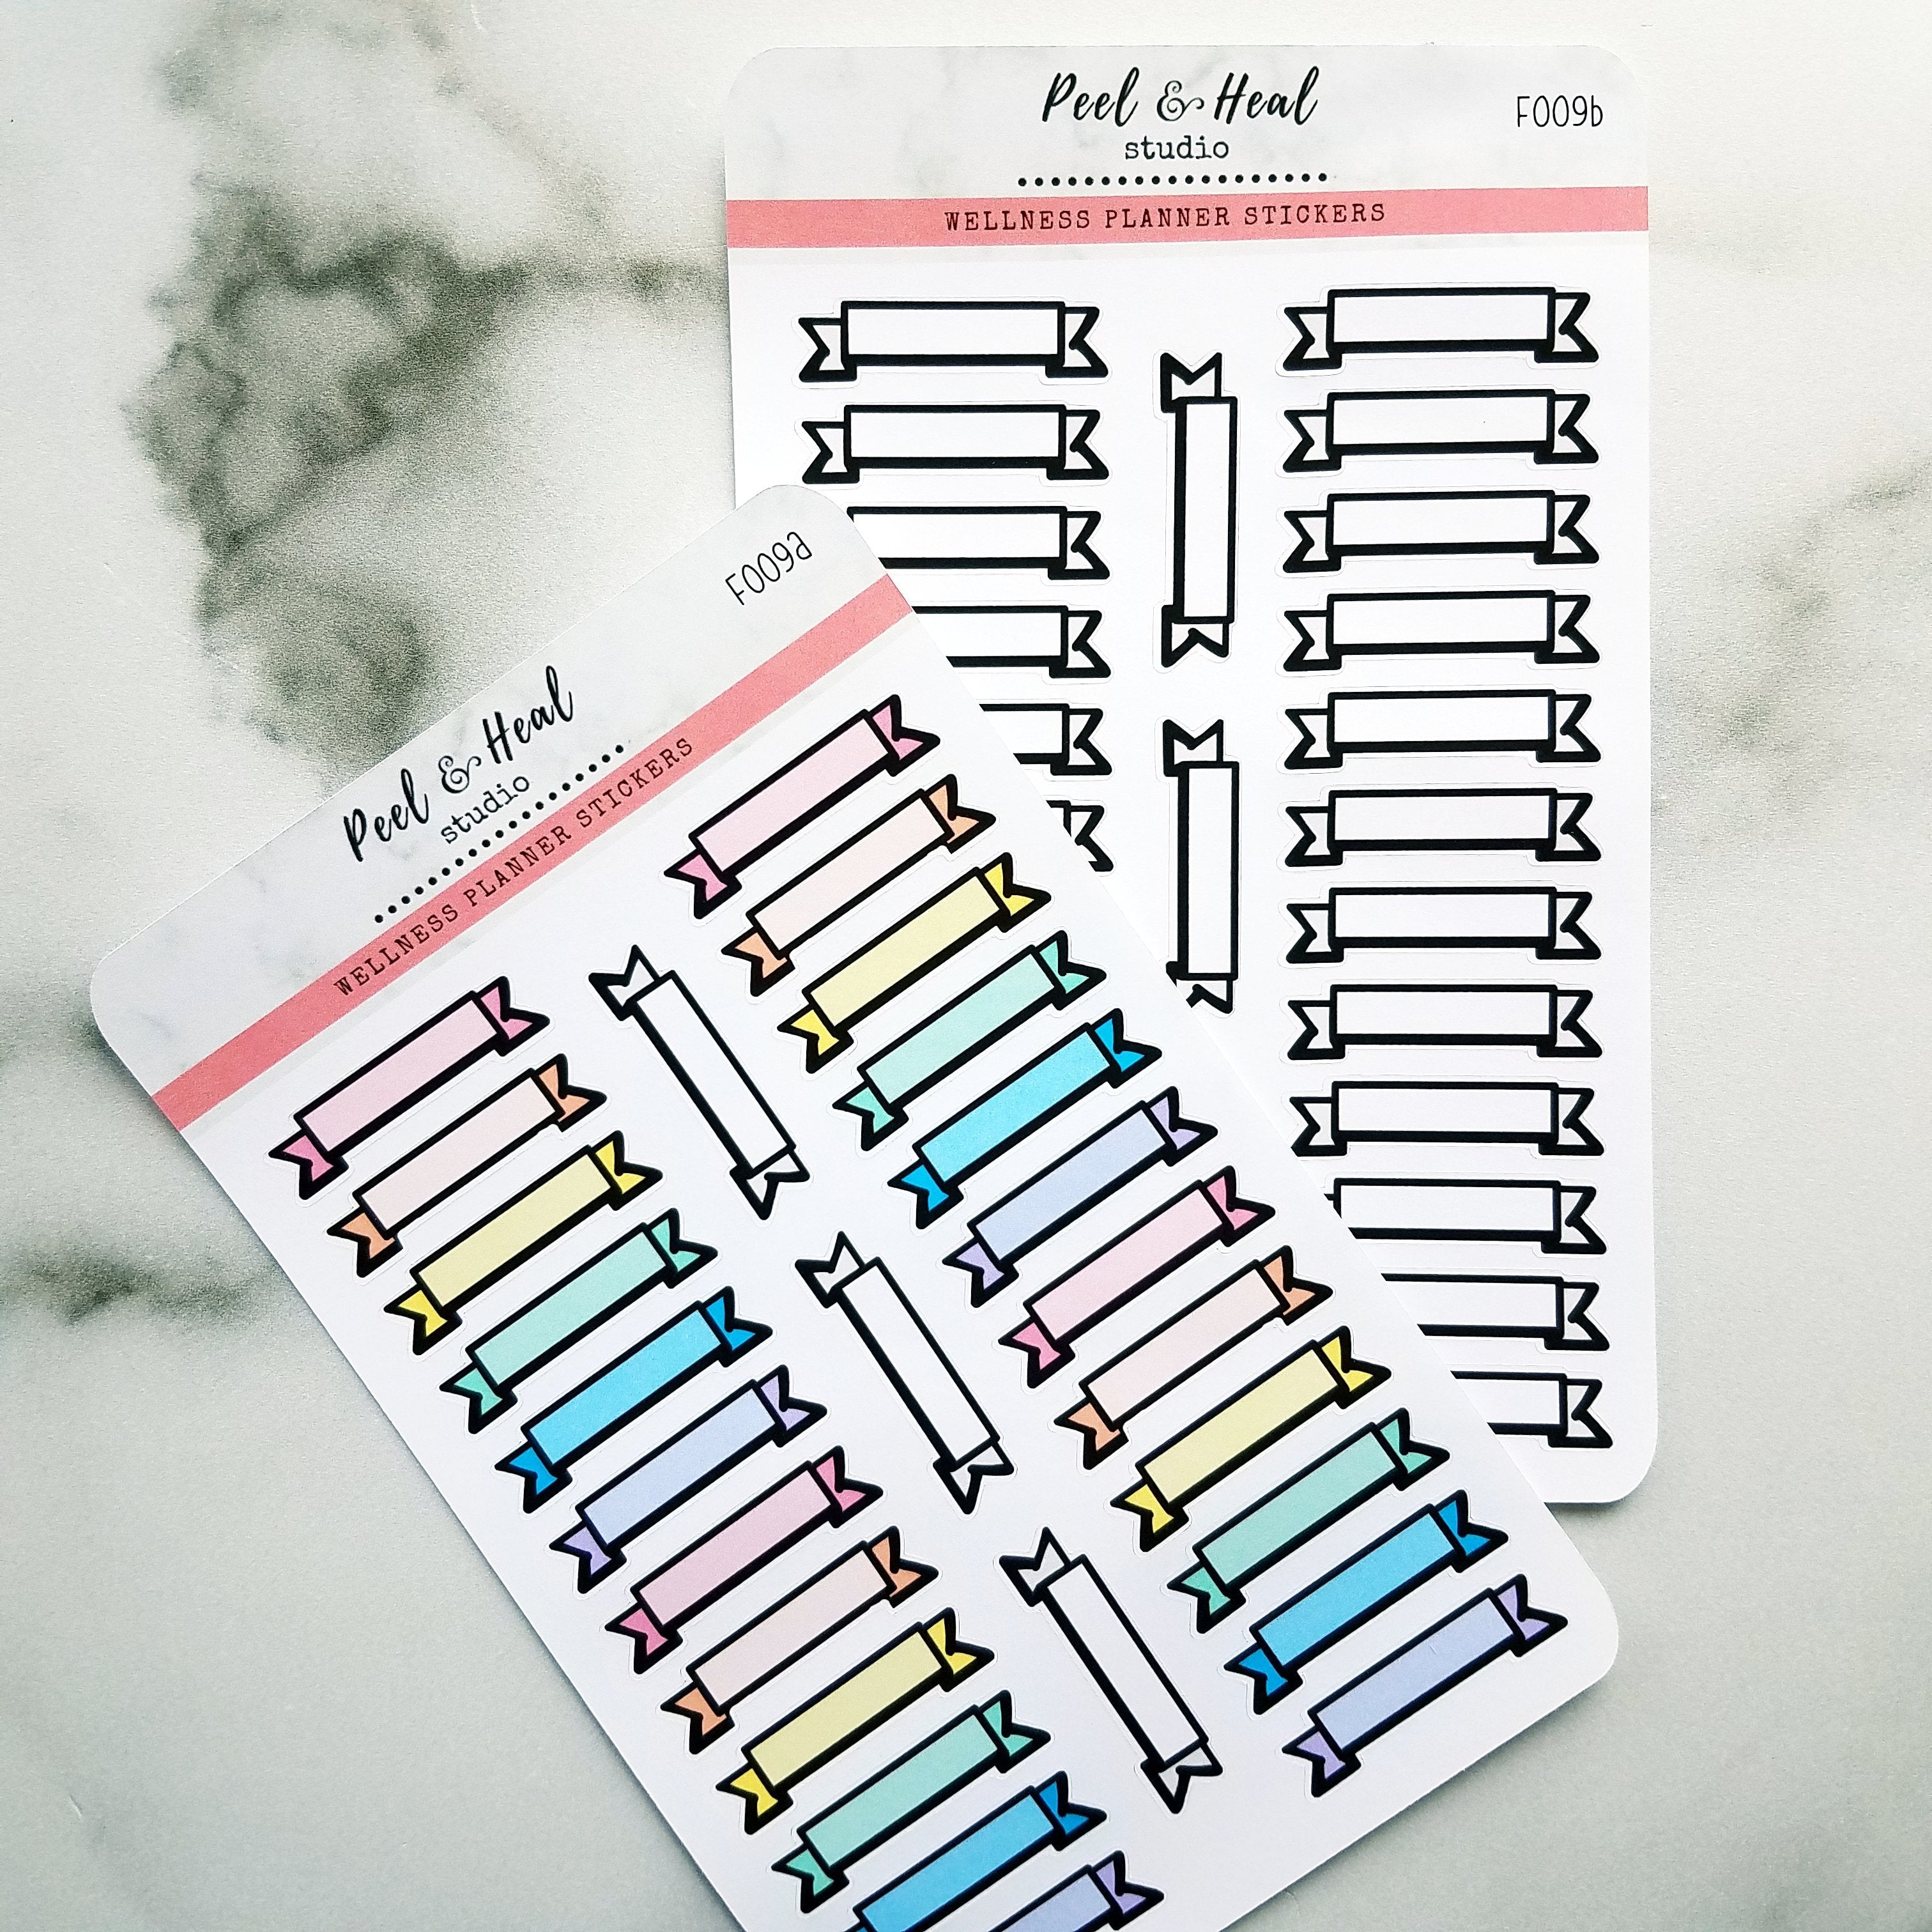 Peel & Heal
studio
F009b
WELLNESS PLANNER STICKERS
F009a
Peel & Heal
studio
WELLNESS PLANNER STICKERS